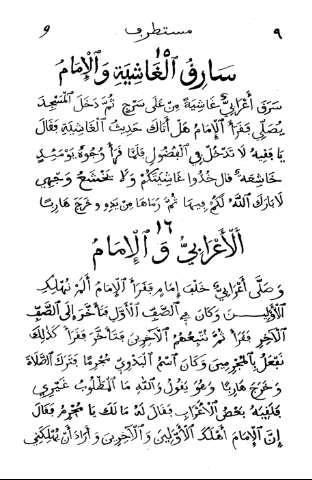 ٩ مستطرف و
١٥
سَارِقُ الْغَاشِيَةِ وَالْإِمَامُ
سَرَقَ أَعْرَابِيٌّ غَاشِيَةً مِنْ عَلَى سَرْجٍ ثُمَّ دَخَلَ الْمَسْجِدَ
يُصَلِّي فَقَرَأَ الْإِمَامُ هَلْ أَتَاكَ حَدِيثُ الْغَاشِيَةِ فَقَالَ
يَا فَقِيهُ لَا تَدْخُلْ فِي الْفُضُولِ فَلَمَّا قَرَأَ وُجُوهٌ يَوْمَئِذٍ
خَاشِعَةٌ قَالَ خُذُوا غَاشِيَتَكُمْ وَلَا يَخْشَعُ وَجْهِي
لَا بَارَكَ اللَّهُ لَكُمْ فِيهَا ثُمَّ رَمَاهَا مِنْ يَدِهِ وَخَرَجَ هَارِبًا
١٦
أَلْأَعْرَابِيُّ وَالْإِمَامُ
وَصَلَّى أَعْرَابِيٌّ خَلْفَ إِمَامٍ فَقَرَأَ الْإِمَامُ أَلَمْ نُهْلِكِ
الْأَوَّلِينَ وَكَانَ فِي الصَّفِّ الْأَوَّلِ فَتَأَخَّرَ إِلَى الصَّفِّ
الْآخِرِ فَقَرَأَ ثُمَّ نُتْبِعُهُمُ الْآخِرِينَ فَتَأَخَّرَ فَقَرَأَ كَذَلِكَ
نَفْعَلُ بِالْمُجْرِمِينَ وَكَانَ اسْمُ الْبَدَوِيِّ مُجْرِمًا فَتَرَكَ الصَّلَاةَ
وَخَرَجَ هَارِبًا وَهُوَ يَقُولُ وَاللَّهِ مَا الْمَطْلُوبُ غَيْرِي
فَلَقِيَهُ بَعْضُ الْأَعْرَابِ فَقَالَ لَهُ مَا لَكَ يَا مُجْرِمُ فَقَالَ
إِنَّ الْإِمَامَ أَهْلَكَ الْأَوَّلِينَ وَالْآخِرِينَ وَأَرَادَ أَنْ يُهْلِكَنِي